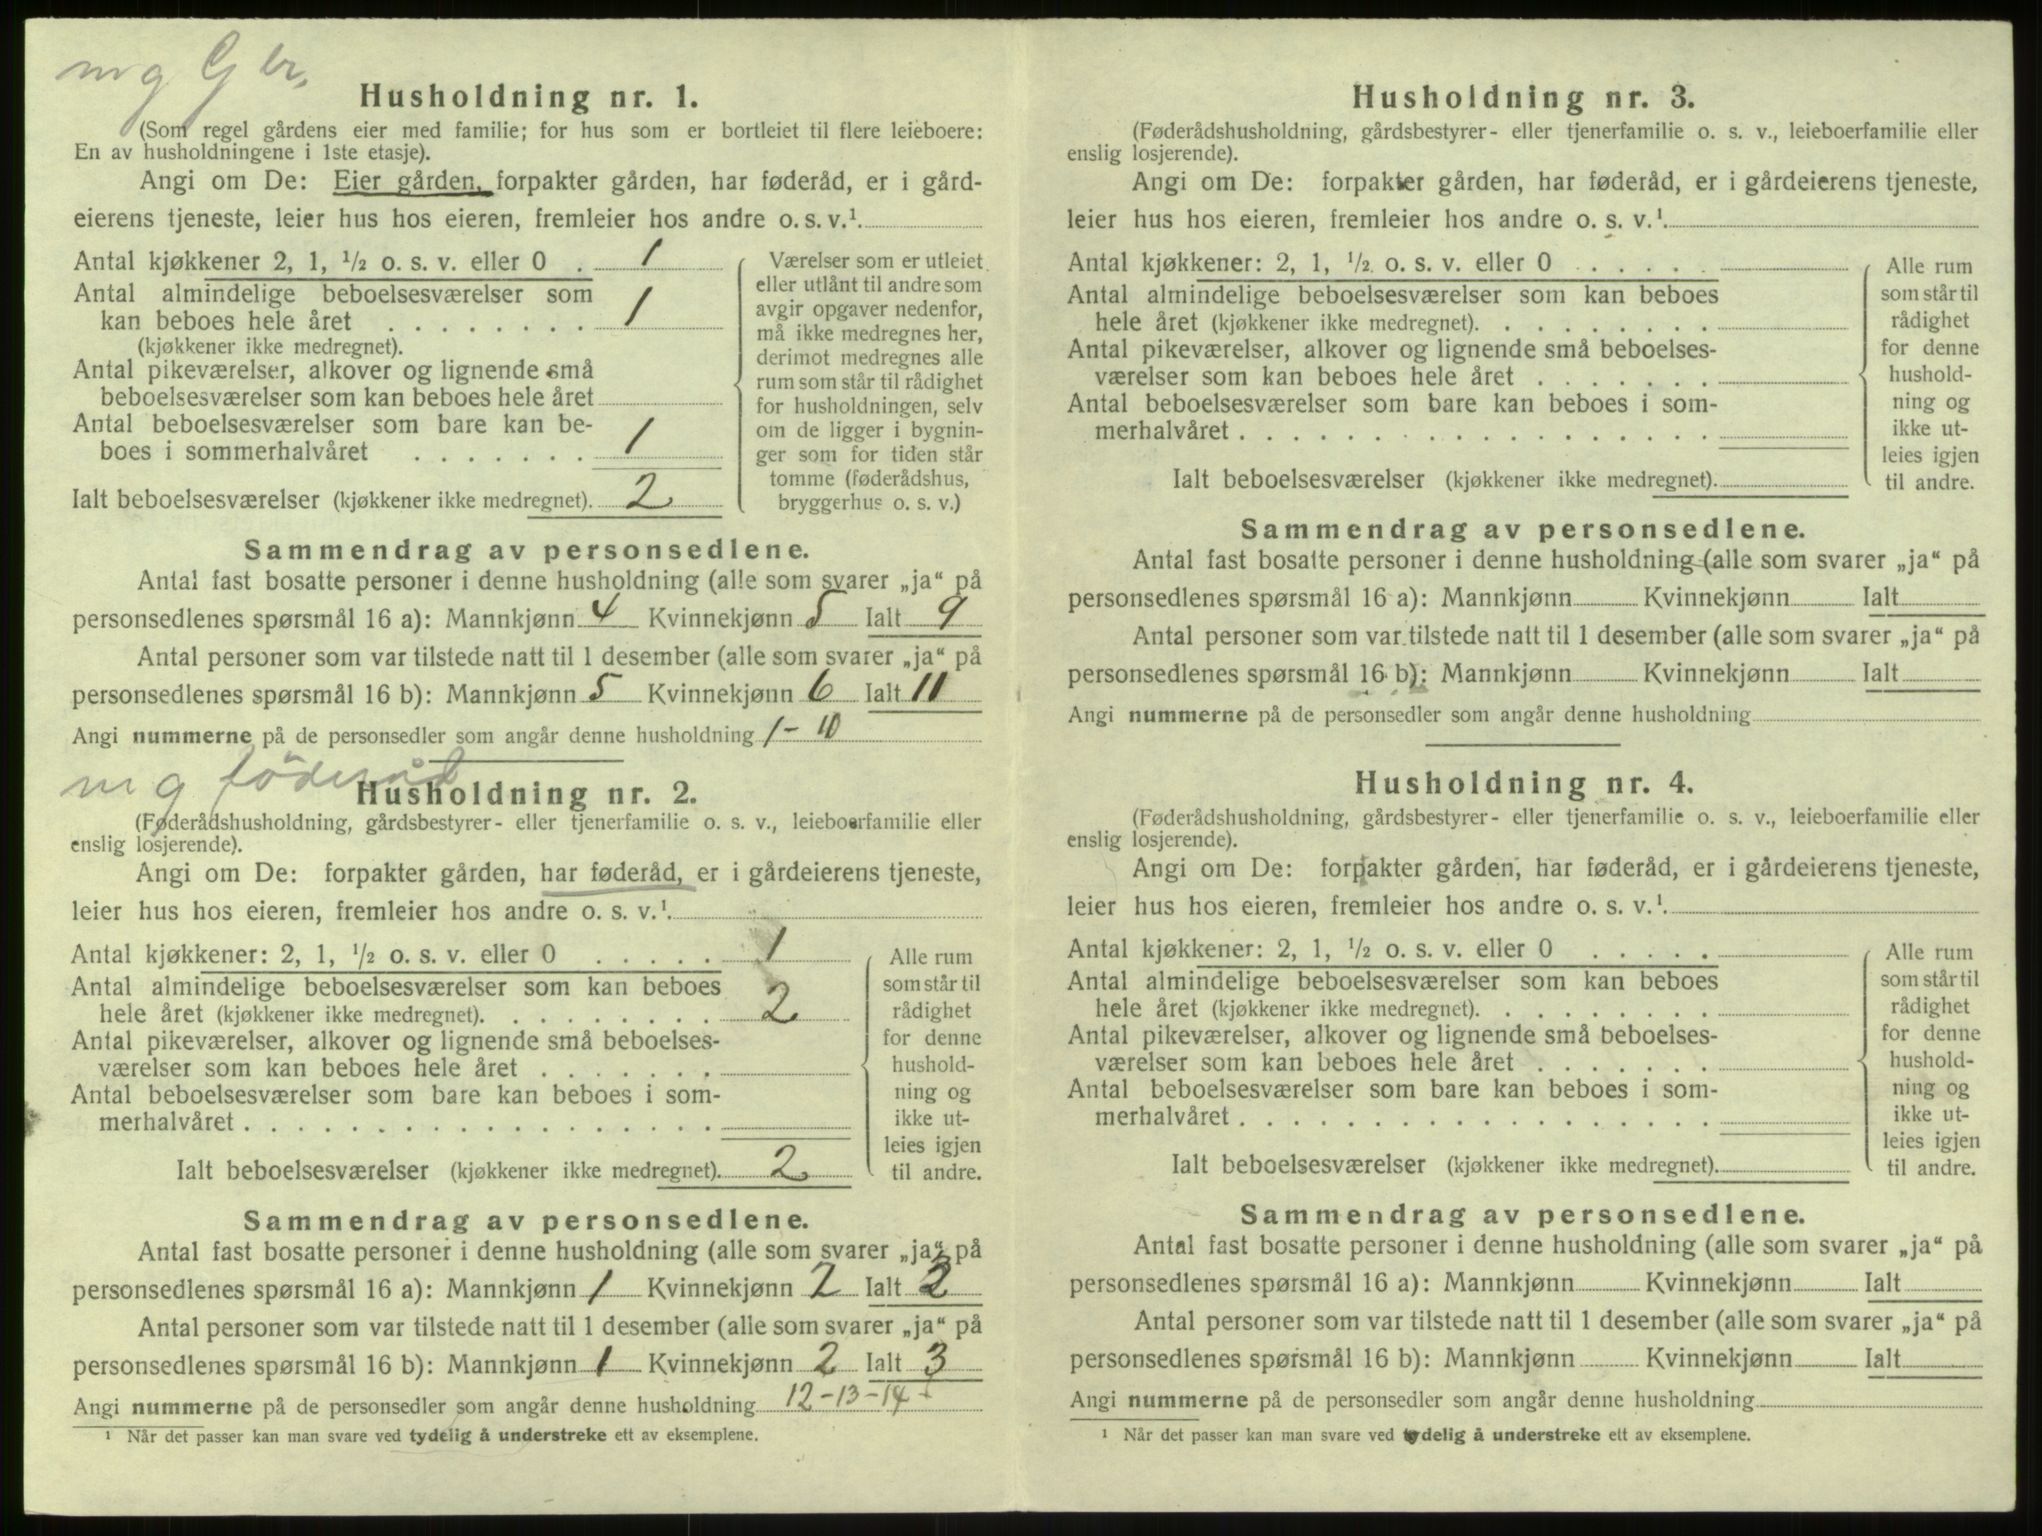 m g G br.
Husholdning nr. 1.
(Som regel gårdens eier med familie; for hus som er bortleiet til flere leieboere:
En av husholdningene i 1ste etasje).
Angi om De: Eier gården, forpakter gården, har føderåd, er i gård-
eierens tjeneste, leier hus hos eieren, fremleier hos andre o. s. v.¹.
Antal kjøkkener 2, 1, ½ o. s. v. eller 0 . 1
Antal almindelige beboelsesværelser som
kan beboes hele året . . . . . . . . 1
(kjøkkener ikke medregnet).
Antal pikeværelser, alkover og lignende små
beboelsesværelser som kan beboes hele året
Antal beboelsesværelser som bare kan be-
boes i sommerhalvåret . . . . . . . 1
Ialt beboelsesværelser (kjøkkener ikke medregnet). 2
Værelser som er utleiet
eller utlånt til andre som
avgir opgaver nedenfor,
må ikke medregnes her,
derimot medregnes alle
rum som står til rådighet
for husholdningen, selv
om de ligger i bygnin-
ger som for tiden står
tomme (føderådshus,
bryggerhus o. s. v.)
Sammendrag av personsedlene.
Antal fast bosatte personer i denne husholdning (alle som svarer „ja“ på
personsedlenes spørsmål 16 a): Mannkjønn 4 Kvinnekjønn 5 Ialt 9
Antal personer som var tilstede natt til 1 desember (alle som svarer „ja“ på
personsedlenes spørsmål 16 b): Mannkjønn 5 Kvinnekjønn 6 Ialt 11
Angi nummerne på de personsedler som angår denne husholdning 1 - 10
m g föderåd
Husholdning nr. 2.
(Føderådshusholdning, gårdsbestyrer- eller tjenerfamilie o. s. v., leieboerfamilie eller
enslig losjerende).
Angi om De: forpakter gården, har føderåd, er i gårdeierens tjeneste,
leier hus hos eieren, fremleier hos andre o. s. v.¹.
Antal kjøkkener: 2, 1, ½ o. s. v. eller 0 . . . . . 1
Antal almindelige beboelsesværelser som kan beboes
hele året (kjøkkener ikke medregnet). . . . . . . . . 2
Antal pikeværelser, alkover og lignende små beboelses-
værelser som kan beboes hele året . . . . . . .
Antal beboelsesværelser som bare kan beboes i som-
merhalvåret . . . . . . . . . . . . . . . . . .
Ialt beboelsesværelser (kjøkkener ikke medregnet). 2
Alle rum
som står til
rådighet
for denne
hushold-
ning og
ikke ut-
leies igjen
til andre.
Sammendrag av personsedlene.
Antal fast bosatte personer i denne husholdning (alle som svarer „ja“ på
personsedlenes spørsmål 16 a): Mannkjønn 1 Kvinnekjønn 2 Ialt 3
Antal personer som var tilstede natt til 1 desember (alle som svarer „ja“ på
personsedlenes spørsmål 16 b): Mannkjønn 1 Kvinnekjønn 2 Ialt 3
Angi nummerne på de personsedler som angår denne husholdning 12-13-14
¹ Når det passer kan man svare ved tydelig å understreke ett av eksemplene.
Husholdning nr. 3.
(Føderådshusholdning, gårdsbestyrer- eller tjenerfamilie o. s. v., leieboerfamilie eller
enslig losjerende).
Angi om De: forpakter gården, har føderåd, er i gårdeierens tjeneste,
leier hus hos eieren, fremleier hos andre o. s. v.¹.
Antal kjøkkener: 2, 1, ½ o. s. v. eller 0 . . . . .
Antal almindelige beboelsesværelser som kan beboes
hele året (kjøkkener ikke medregnet). . . . . . . . .
Antal pikeværelser, alkover og lignende små beboelses-
værelser som kan beboes hele året . . . . . . .
Antal beboelsesværelser som bare kan beboes i som-
merhalvåret . . . . . . . . . . . . . . . . . .
Ialt beboelsesværelser (kjøkkener ikke medregnet).
Alle rum
som står til
rådighet
for denne
hushold-
ning og
ikke ut-
leies igjen
til andre.
Sammendrag av personsedlene.
Antal fast bosatte personer i denne husholdning (alle som svarer „ja“ på
personsedlenes spørsmål 16 a): Mannkjønn Kvinnekjønn Ialt
Antal personer som var tilstede natt til 1 desember (alle som svarer „ja“ på
personsedlenes spørsmål 16 b): Mannkjønn Kvinnekjønn Ialt
Angi nummerne på de personsedler som angår denne husholdning
Husholdning nr. 4.
(Føderådshusholdning, gårdsbestyrer- eller tjenerfamilie o. s. v., leieboerfamilie eller
enslig losjerende).
Angi om De: forpakter gården, har føderåd, er i gårdeierens tjeneste,
leier hus hos eieren, fremleier hos andre o. s. v.¹.
Antal kjøkkener: 2, 1, ½ o. s. v. eller 0 . . . . .
Antal almindelige beboelsesværelser som kan beboes
hele året (kjøkkener ikke medregnet). . . . . . . . .
Antal pikeværelser, alkover og lignende små beboelses-
værelser som kan beboes hele året . . . . . . .
Antal beboelsesværelser som bare kan beboes i som-
merhalvåret . . . . . . . . . . . . . . . . . .
Ialt beboelsesværelser (kjøkkener ikke medregnet).
Alle rum
som står til
rådighet
for denne
hushold-
ning og
ikke ut-
leies igjen
til andre.
Sammendrag av personsedlene.
Antal fast bosatte personer i denne husholdning (alle som svarer „ja“ på
personsedlenes spørsmål 16 a): Mannkjønn Kvinnekjønn Ialt
Antal personer som var tilstede natt til 1 desember (alle som svarer „ja“ på
personsedlenes spørsmål 16 b): Mannkjønn Kvinnekjønn Ialt
Angi nummerne på de personsedler som angår denne husholdning
¹ Når det passer kan man svare ved tydelig å understreke ett av eksemplene.